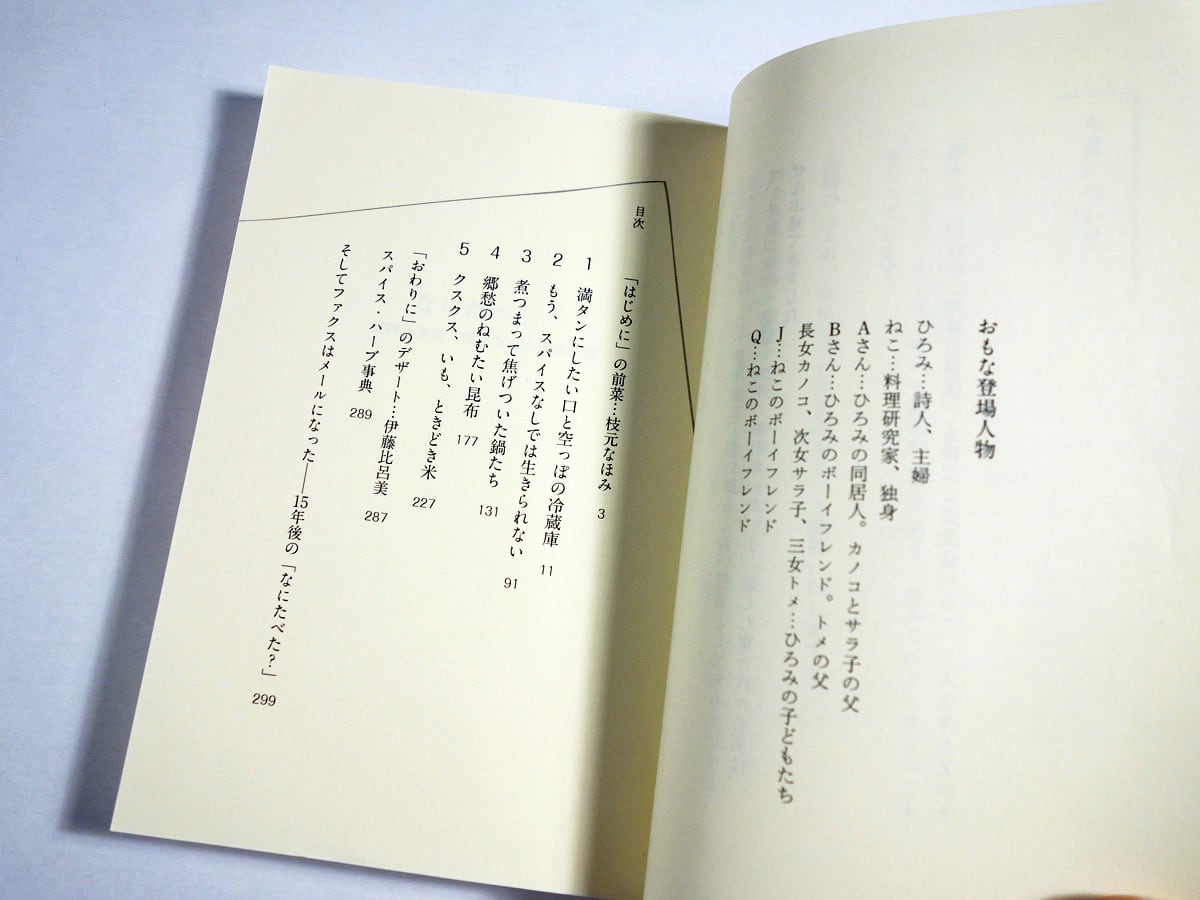 おもな登場人物
ひろみ…詩人、主婦
ねこ…料理研究家、独身
Aさん…ひろみの同居人。カノコとサラ子の父
Bさん…ひろみのボーイフレンド。トメの父
長女カノコ、次女サラ子、三女トメ…ひろみの子どもたち
J…ねこのボーイフレンド
Q…ねこのボーイフレンド
目次
「はじめに」の前菜…枝元なほみ 3
1 満タンにしたい口と空っぽの冷蔵庫 11
2 もう、スパイスなしでは生きられない 91
3 煮つまって焦げついた鍋たち 131
4 郷愁のねむたい昆布 177
5 クスクス、いも、ときどき米 227
「おわりに」のデザート…伊藤比呂美 287
スパイス・ハーブ事典 289
そしてファクスはメールになった――15年後の「なにたべた？」 299